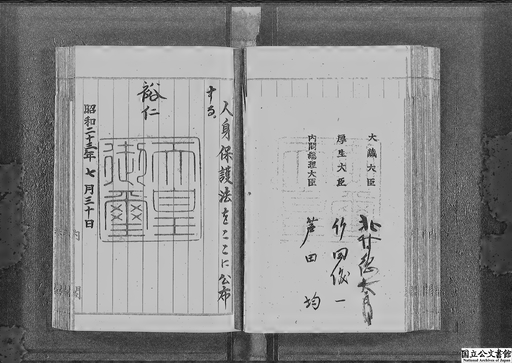 大藏大臣 北村徳太郎
厚生大臣 竹田儀一
內閣總理大臣 芦田均
人身保護法をここに公布
する。
裕仁
天皇
御璽
昭和二十三年七月三十日
内閣
国立公文書館
National Archives of Japan